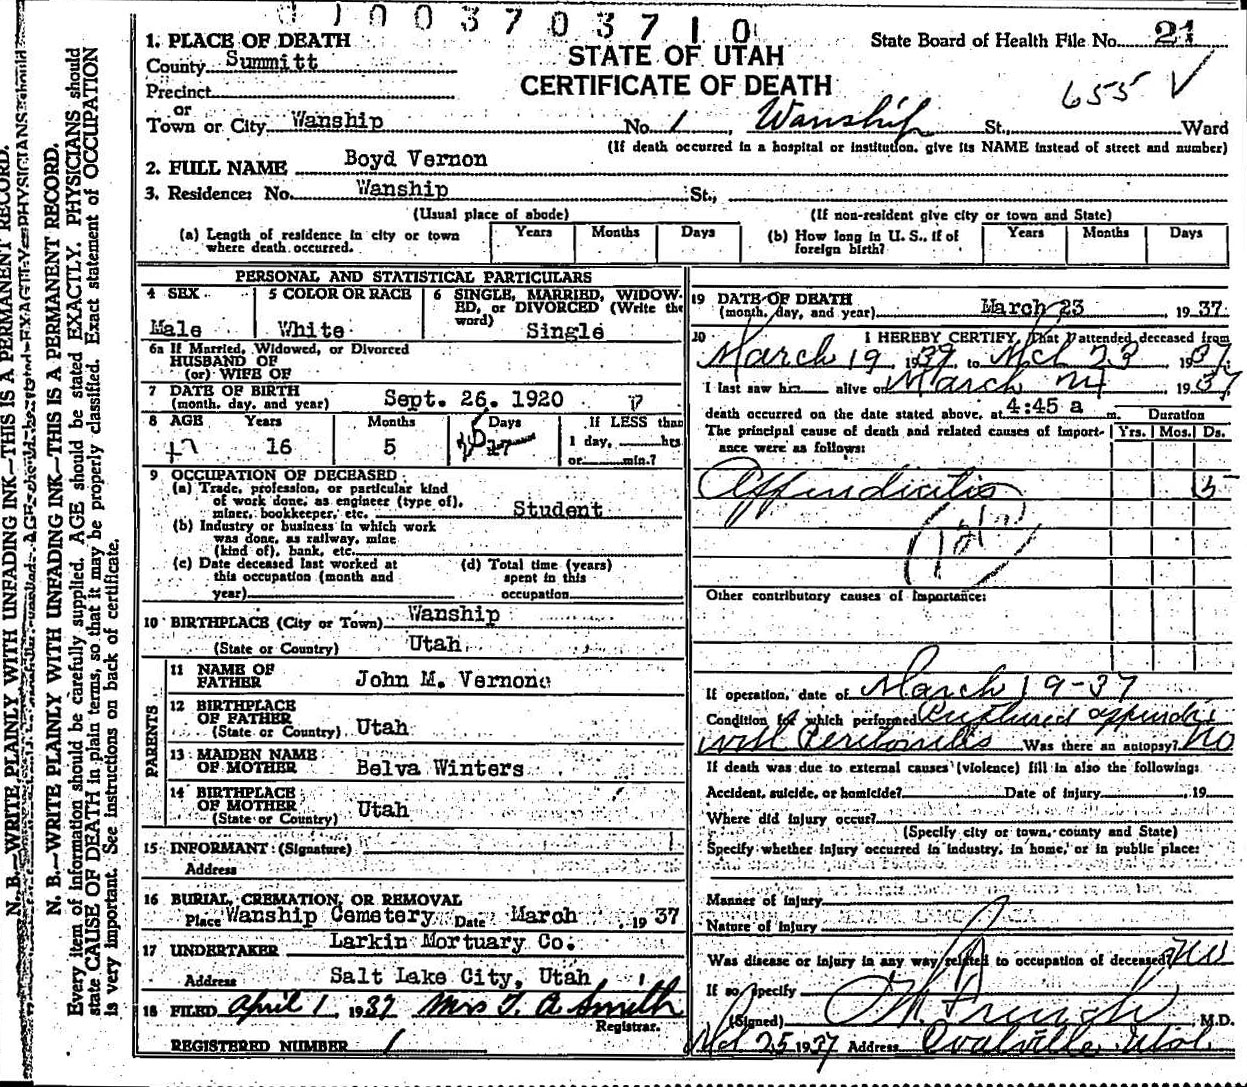 0 1 0 0 3 7 0 3 7 1 0
1. PLACE OF DEATH
County Summitt
Precinct
or
Town or City Wanship
STATE OF UTAH
CERTIFICATE OF DEATH
State Board of Health File No. 21
655 ✓
No. 1, Wanship St., Ward
(If death occurred in a hospital or institution, give its NAME instead of street and number)
2. FULL NAME Boyd Vernon
3. Residence: No. Wanship St.,
(Usual place of abode) (If non-resident give city or town and State)
(a) Length of residence in city or town where death occurred. Years Months Days
(b) How long in U. S., if of foreign birth? Years Months Days
PERSONAL AND STATISTICAL PARTICULARS
4 SEX Male
5 COLOR OR RACE White
6 SINGLE, MARRIED, WIDOWED, or DIVORCED (Write the word) Single
6a If Married, Widowed, or Divorced
HUSBAND OF
(or) WIFE OF
7 DATE OF BIRTH
(month, day, and year) Sept. 26, 1920
8 AGE Years Months Days If LESS than
17 16 5 1 day, hrs
or min.?
9 OCCUPATION OF DECEASED
(a) Trade, profession, or particular kind
of work done, as engineer (type of),
miner, bookkeeper, etc. Student
(b) Industry or business in which work
was done, as railway, mine
(kind of), bank, etc.
(c) Date deceased last worked at
this occupation (month and
year)
(d) Total time (years)
spent in this
occupation
10 BIRTHPLACE (City or Town) Wanship
(State or Country) Utah
PARENTS
11 NAME OF
FATHER John M. Vernone
12 BIRTHPLACE
OF FATHER
(State or Country) Utah
13 MAIDEN NAME
OF MOTHER Belva Winters
14 BIRTHPLACE
OF MOTHER
(State or Country) Utah
15 INFORMANT (Signature)
Address
16 BURIAL, CREMATION, OR REMOVAL
Place Wanship Cemetery Date March, 19 37
17 UNDERTAKER Larkin Mortuary Co.
Address Salt Lake City, Utah
18 FILED April 1, 1937 Mrs F. A Smith
Registrar.
REGISTERED NUMBER 1
19 DATE OF DEATH
(month, day, and year) March 23, 19 37
20 I HEREBY CERTIFY, That I attended deceased from
March 19 1937, to Mch 23 1937
I last saw h alive on March 1937
death occurred on the date stated above, at 4:45 a m. Duration
The principal cause of death and related causes of importance were as follows: Yrs. Mos. Ds.
Appendicitis 5
(121)
Other contributory causes of importance:
If operation, date of March 19-37
Condition for which performed Ruptured appendix
with Peritonitis Was there an autopsy? No
If death was due to external causes (violence) fill in also the following:
Accident, suicide, or homicide? Date of injury, 19
Where did injury occur?
(Specify city or town, county and State)
Specify whether injury occurred in industry, in home, or in public place:
Manner of injury
Nature of injury
Was disease or injury in any way related to occupation of deceased? No
If so, specify
(Signed) M.D.
Mch 25 1937 Address Coalville Utah
N. B.—WRITE PLAINLY WITH UNFADING INK—THIS IS A PERMANENT RECORD.
N. B.—WRITE PLAINLY WITH UNFADING INK—THIS IS A PERMANENT RECORD.
Every item of information should be carefully supplied. AGE should be stated EXACTLY. PHYSICIANS should
state CAUSE OF DEATH in plain terms, so that it may be properly classified. Exact statement of OCCUPATION
is very important. See instructions on back of certificate.